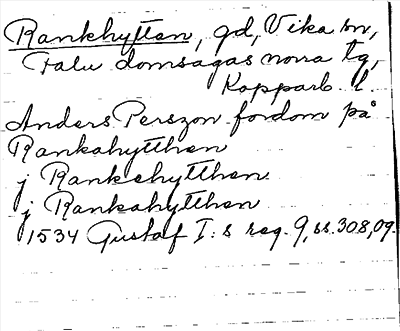 Rankhyttan, gd, Vika sn,
Falu domsagas norra tg,
Kopparb. l.
Anders Perszon fordom på
Rankahytthen
j Rankehytthen
j Rankahytthen
1534 Gustaf I:s reg. 9, ss. 308, 09.